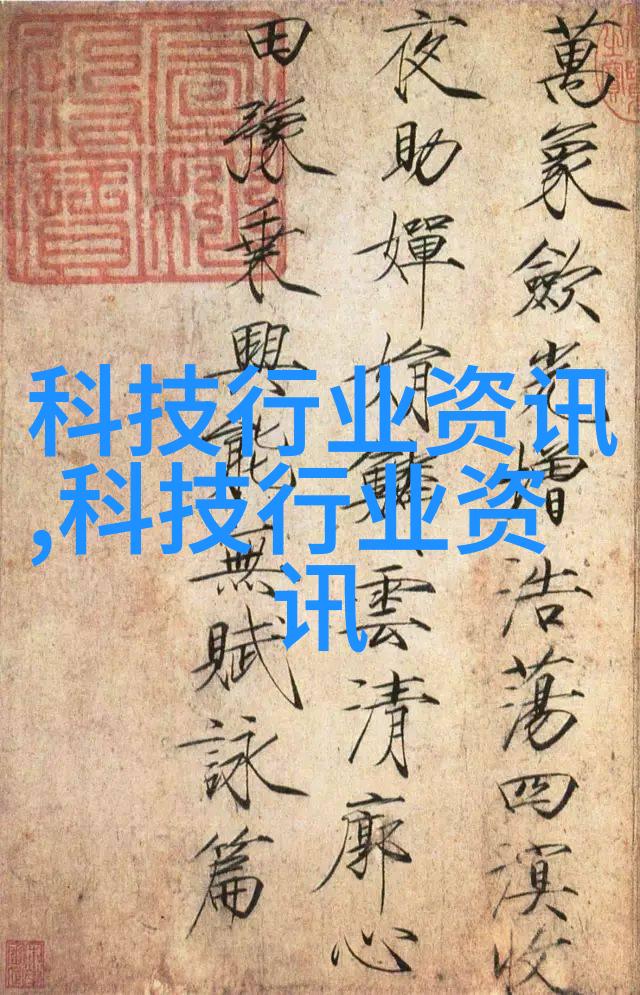 萬象歛光增浩蕩四溟收
夜助嬋娟鱗雲清廓心
田豫乗興能無賦詠篇
科技行业资讯
,科技行业资
讯